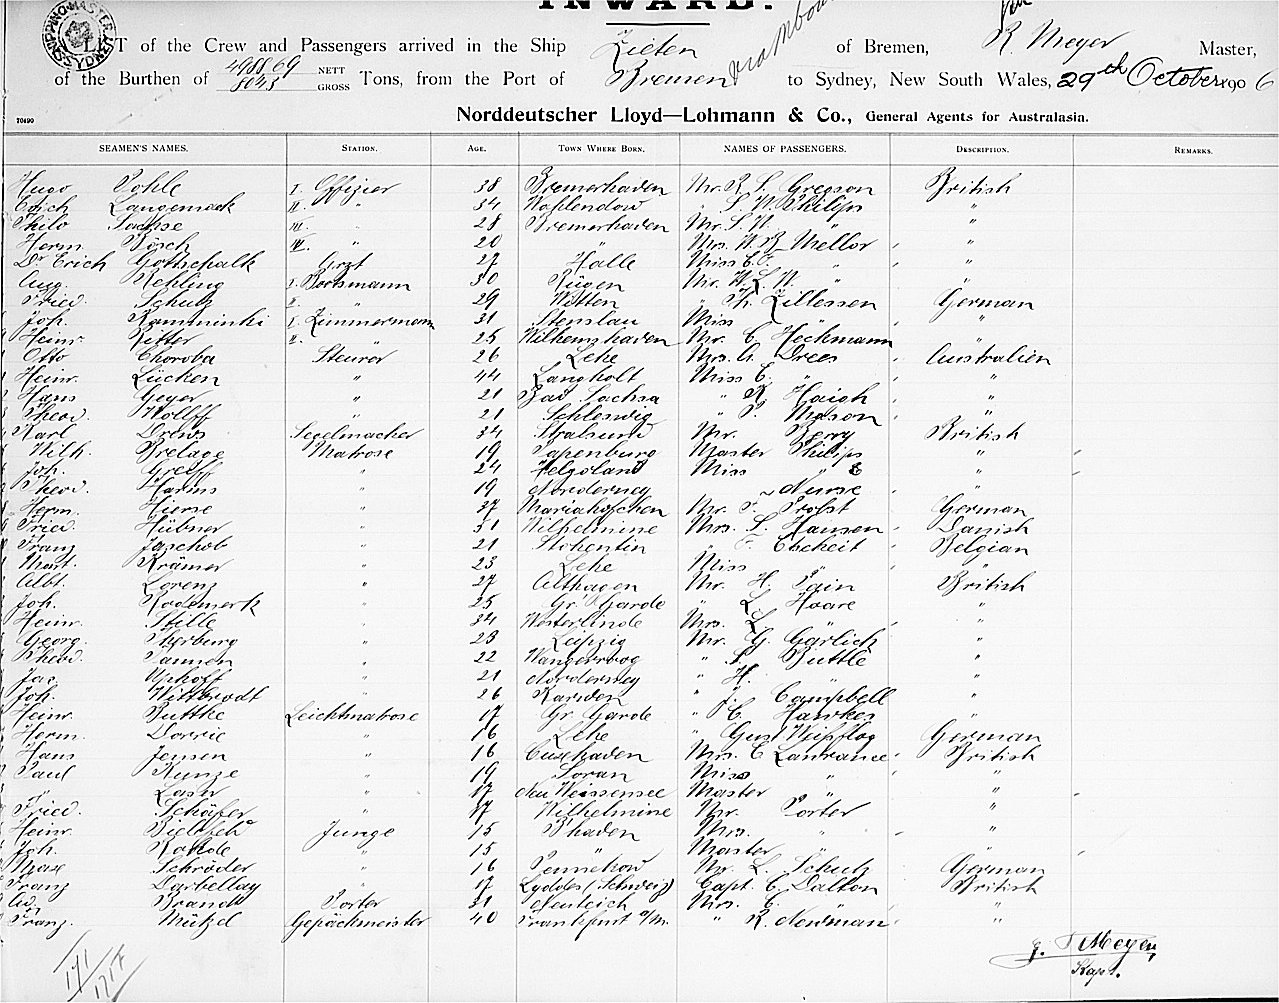 INWARD.
SHIPPING MASTER SYDNEY
LIST of the Crew and Passengers arrived in the Ship Zieten of Bremen, R. Meyer Master,
of the Burthen of 4988 69 NETT 8043 GROSS Tons, from the Port of Bremen to Sydney, New South Wales, 29th October 1906
70490 Norddeutscher Lloyd—Lohmann & Co., General Agents for Australasia.
SEAMEN'S NAMES. STATION. AGE. TOWN WHERE BORN. NAMES OF PASSENGERS. DESCRIPTION. REMARKS.
Hugo Pohle I. Offizier 38 Bremerhaven Mr. R. S. Gregson British
Erich Langemack II. " 34 Wohlendow " S. N. Philips "
Thilo Sachse III. " 28 Bremerhaven Mr. S. N. "
Herm. Bösch IV. " 20 " Mrs. W. B. Mellor "
Dr Erich Gottschalk Arzt 27 Halle Miss E. F. " "
Aug. Rehling I. Bootsmann 30 Rügen Mr. W. L. N. " "
Fried. Schulz II. " 29 Witten " Th. Lillessen German
Joh. Kamminski I. Zimmermann 31 Stenslau Miss " "
Heinr. Ritter II. " 25 Wilhelmshaven Mr. C. Heckmann "
Otto Choroba Steurer 26 Lehe Mrs. A. Drees Australien
Heinr. Lücken " 44 Langholt Miss E. " "
Hans Geyer " 21 Bad Sachsa " R. Haigh "
Theod. Wolff " 21 Schleswig " P. Mason "
Karl Drews Segelmacher 34 Stralsund Mr. Berry British
Wilh. Brelage Matrose 19 Papenburg Master Philips "
Joh. Greiff " 24 Helgoland Miss " &
Theod. Harms " 19 Norderney Nurse "
Herm. Hierse " 37 Mariahöfchen Mr. F. Probst German
Fried. Hübner " 31 Wilhelmine Mrs. L. Hansen Danish
Franz Jaschob " 21 Stohentin " F. Ebeheit Belgian
Mart. Krämer " 23 Lehe Miss " "
Albt. Lorenz " 27 Althagen Mr. H. Pain British
Joh. Rodemerk " 25 Gr. Garde " L. Hoare "
Heinr. Stille " 34 Westerlinde Mrs. L. " "
Georg Therburg " 23 Leipzig Mr. G. Garlick "
Theod. Tannen " 22 Wangeroog " S. Buttle "
Jac. Uphoff " 21 Norderney " H. " "
Joh. Wittbrodt " 26 Karwen " J. Campbell "
Heinr. Buttke Leichtmatrose 17 Gr. Garde " C. Hawkes "
Herm. Dorrie " 16 Lehe " Gust Weissflog German
Hans Jensen " 16 Cuxhaven Mrs. C. Lawrance British
Paul Kunze " 19 Soran Miss " "
Laser " 17 Neu Weissensee Master " "
Fried. Schäfer " 17 Wilhelmine Mr. Porter "
Heinr. Junge 15 B'haven Mrs. " "
Joh. Rohde " 15 " Master " "
Max Schröder " 16 Pennekow Mr. L. Schulz German
Franz Darbellay " 17 Lyddes (Schweiz) Capt. C. Dalton British
Ad. Brandt Porter 31 Neuteich Mrs. C. " "
Franz Mützel Gepäckmeister 40 Frankfurt a/M. " R. Newman "
171
1717
Meyer,
Kapt.